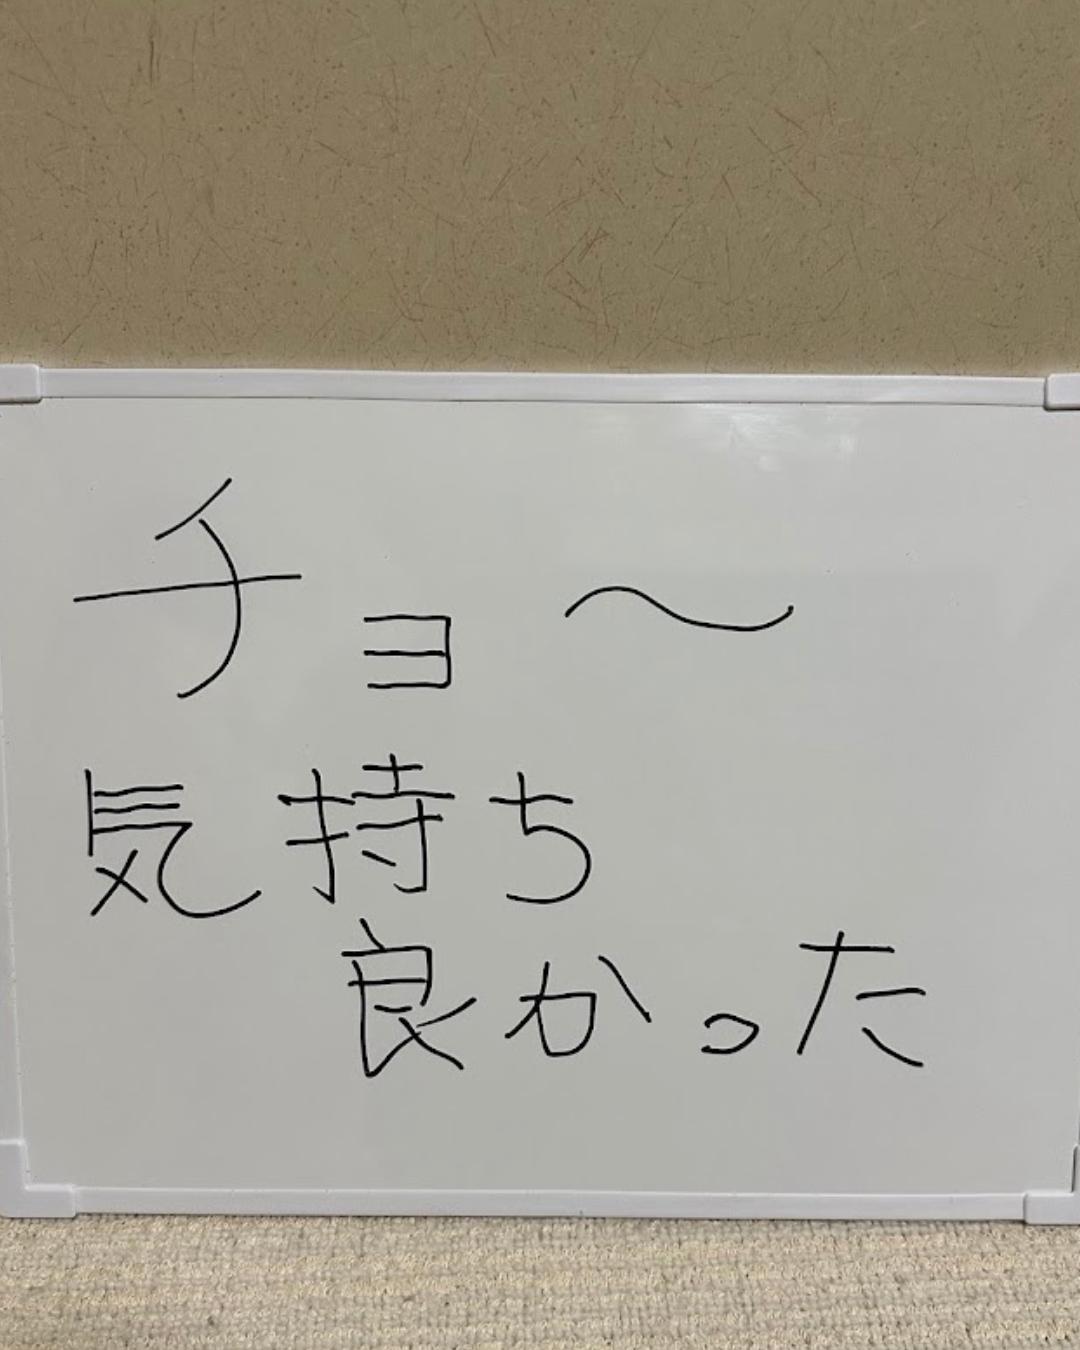 チョ〜
気持ち
良かった